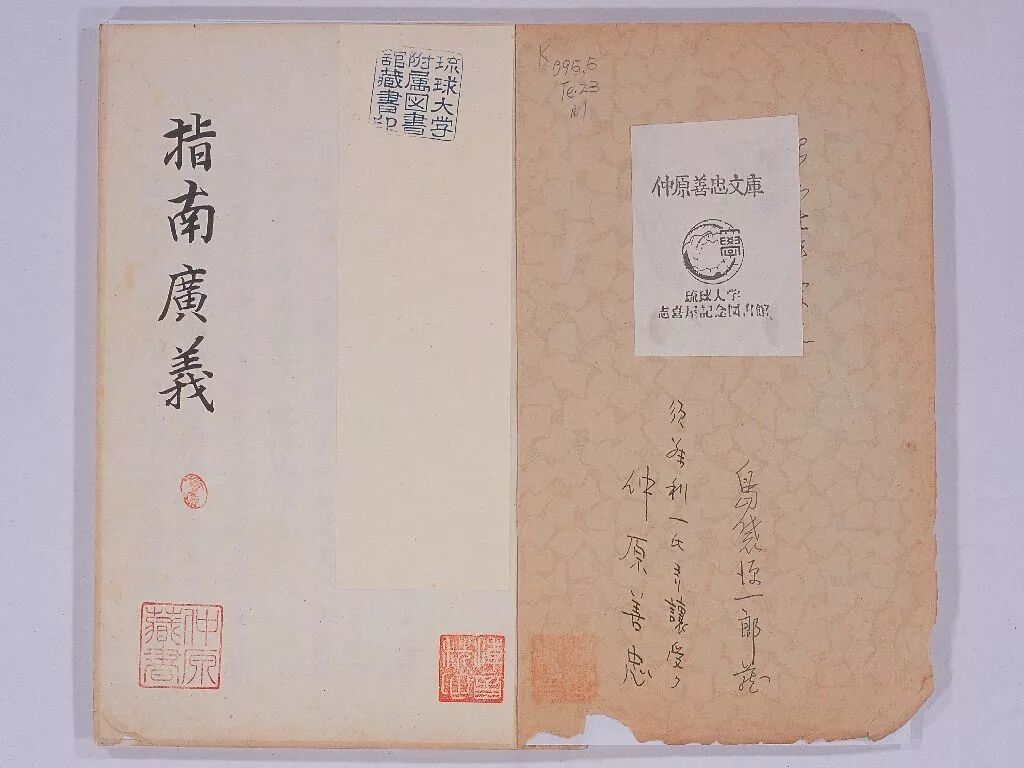 K
095.5
Te.23
仲原善忠文庫
學
琉球大学
志喜屋記念図書館
島袋源一郎蔵
須藤利一氏ヨリ讓受ク
仲原善忠
琉球大学
附属図書
館蔵書印
指南廣義
仲原
藏書